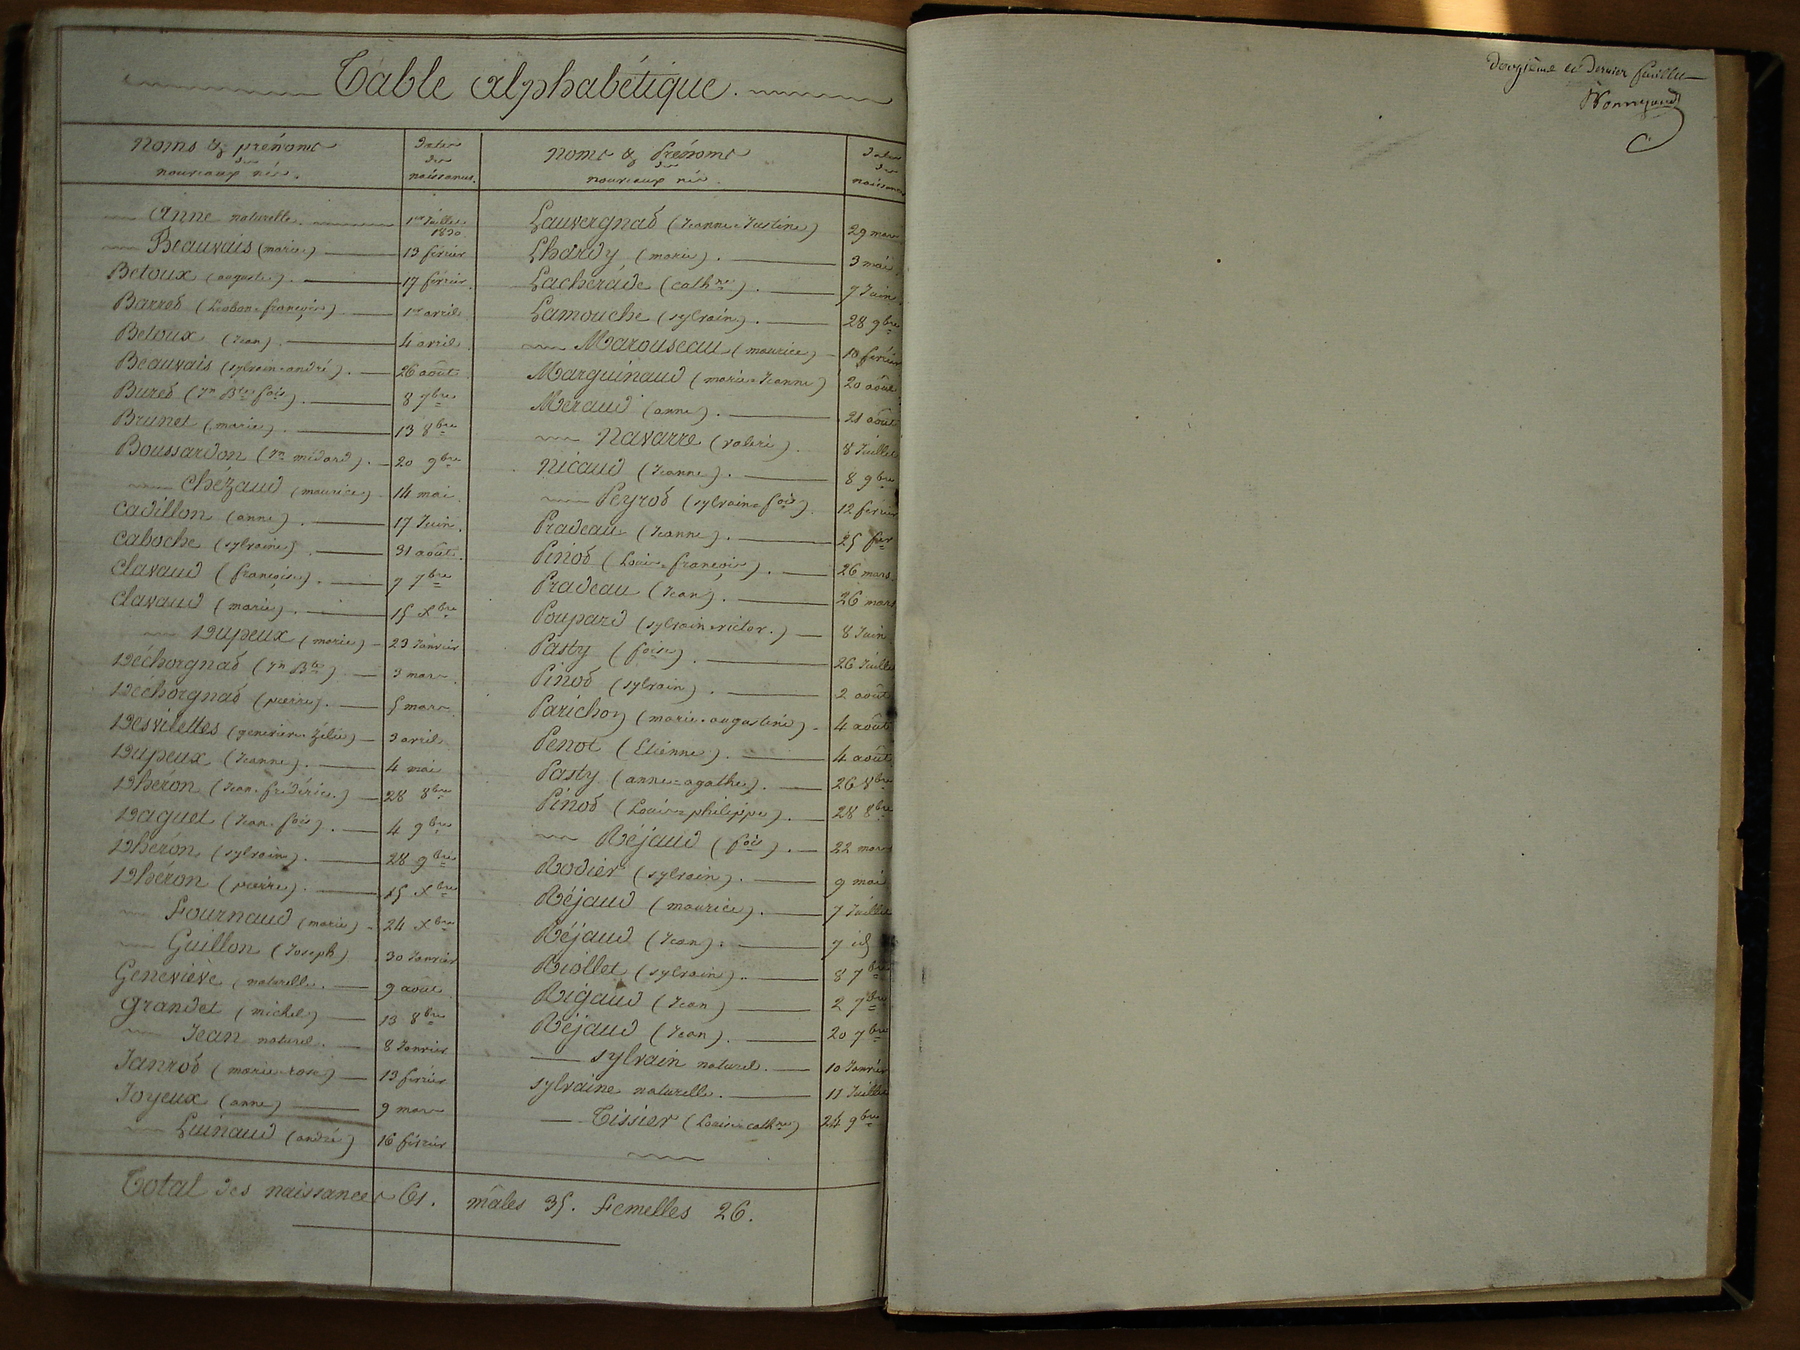 Table alphabétique.
Noms & prénoms
des
nouveaux nés.
Dates
des
naissances.
Noms & Prénoms
des
nouveaux nés.
Dates
des
naissances
Anne naturelle. 1er Juillet 1830
Beauvais (marie) 13 février
Betoux (auguste). 17 février.
Barret (Léobon-françois) 1er avril
Betoux (Jean). 4 avril
Beauvais (sylvain-andré). 26 août
Buret (Jn Bte fois). 8 7bre
Brunet (marie). 13 8bre
Boussardon (Jn médard). 20 9bre
Chézaud (maurice) 14 mai
Cadillon (anne). 17 Juin.
Caboche (sylvaine). 31 août.
Clavaud (françoise). 7 7bre
Clavaud (marie). 15 Xbre
Dupeux (marie) 23 Janvier
Déchorgnat (Jn Bte). 3 mars
Déchorgnat (pierre). 5 mars
Desvilettes (geneviève-Zélie) 3 avril
Dupeux (Jeanne). 4 mai
Dhéron (Jean-frédéric.) 28 8bre
Daguet (Jean-fois). 4 9bre
Dhéron (sylvain). 28 9bre
Dhéron (pierre). 15 Xbre
Fournaud (marie) 24 Xbre
Guillon (Joseph) 30 Janvier
Geneviève (naturelle. 9 août
Grandet (michel) 13 8bre
Jean naturel. 8 Janvier
Janrot (marie-rose) 13 février
Joyeux (anne) 9 mars
Luinaud (andré) 16 février
Lauvergnat (Jeanne-Justine) 29 mars
Lhardy (marie). 3 mai
Lachérade (cathne). 7 Juin
Lamouche (sylvain). 28 9bre
Marouseau (maurice) 10 février
Marguinaud (marie-Jeanne) 20 août
Meraud (anne). 21 août
Navarre (valeri). 8 Juillet
Nicaud (Jeanne). 8 9bre
Peyrot (sylvain-fois). 12 février
Pradeau (Jeanne). 25 fer
Pinot (Louis-françois). 26 mars.
Pradeau (Jean). 26 mars
Poupard (sylvain-victor.) 8 Juin
Pasty (foise). 26 Juillet
Pinot (sylvain). 2 août
Parichon (marie-augustine) 4 août
Penot (Etienne). 4 août
Pasty (anne-agathe). 26 8bre
Pinot (Louis-philippe). 28 8bre
Réjaud (fois). 22 mars
Rodier (sylvain). 9 mai
Réjaud (maurice). 7 Juillet
Réjaud (Jean). 7 id
Riollet (sylvain). 8 7bre
Rigaud (Jean) 2 7bre
Réjaud (Jean). 20 7bre
Sylvain naturel. 10 Janvier
Sylvaine naturelle. 11 Juillet
Tissier (Louise-cathne) 24 9bre
Total des naissances 61. mâles 35. Femelles 26.
Douzième et Dernier feuillet